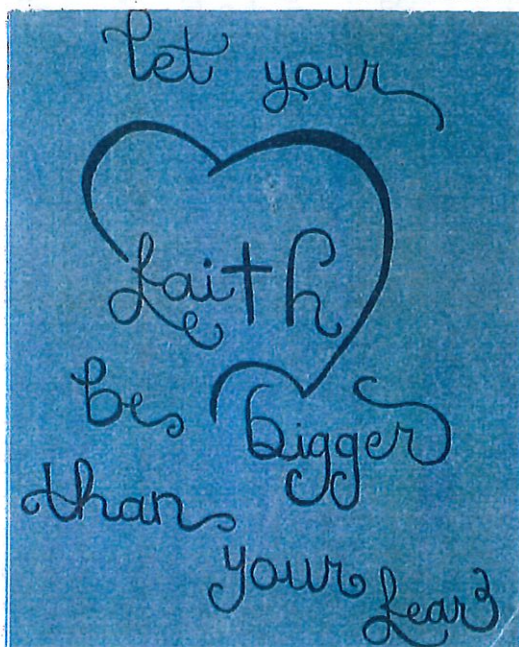 let your
faith
be bigger
than
your fear